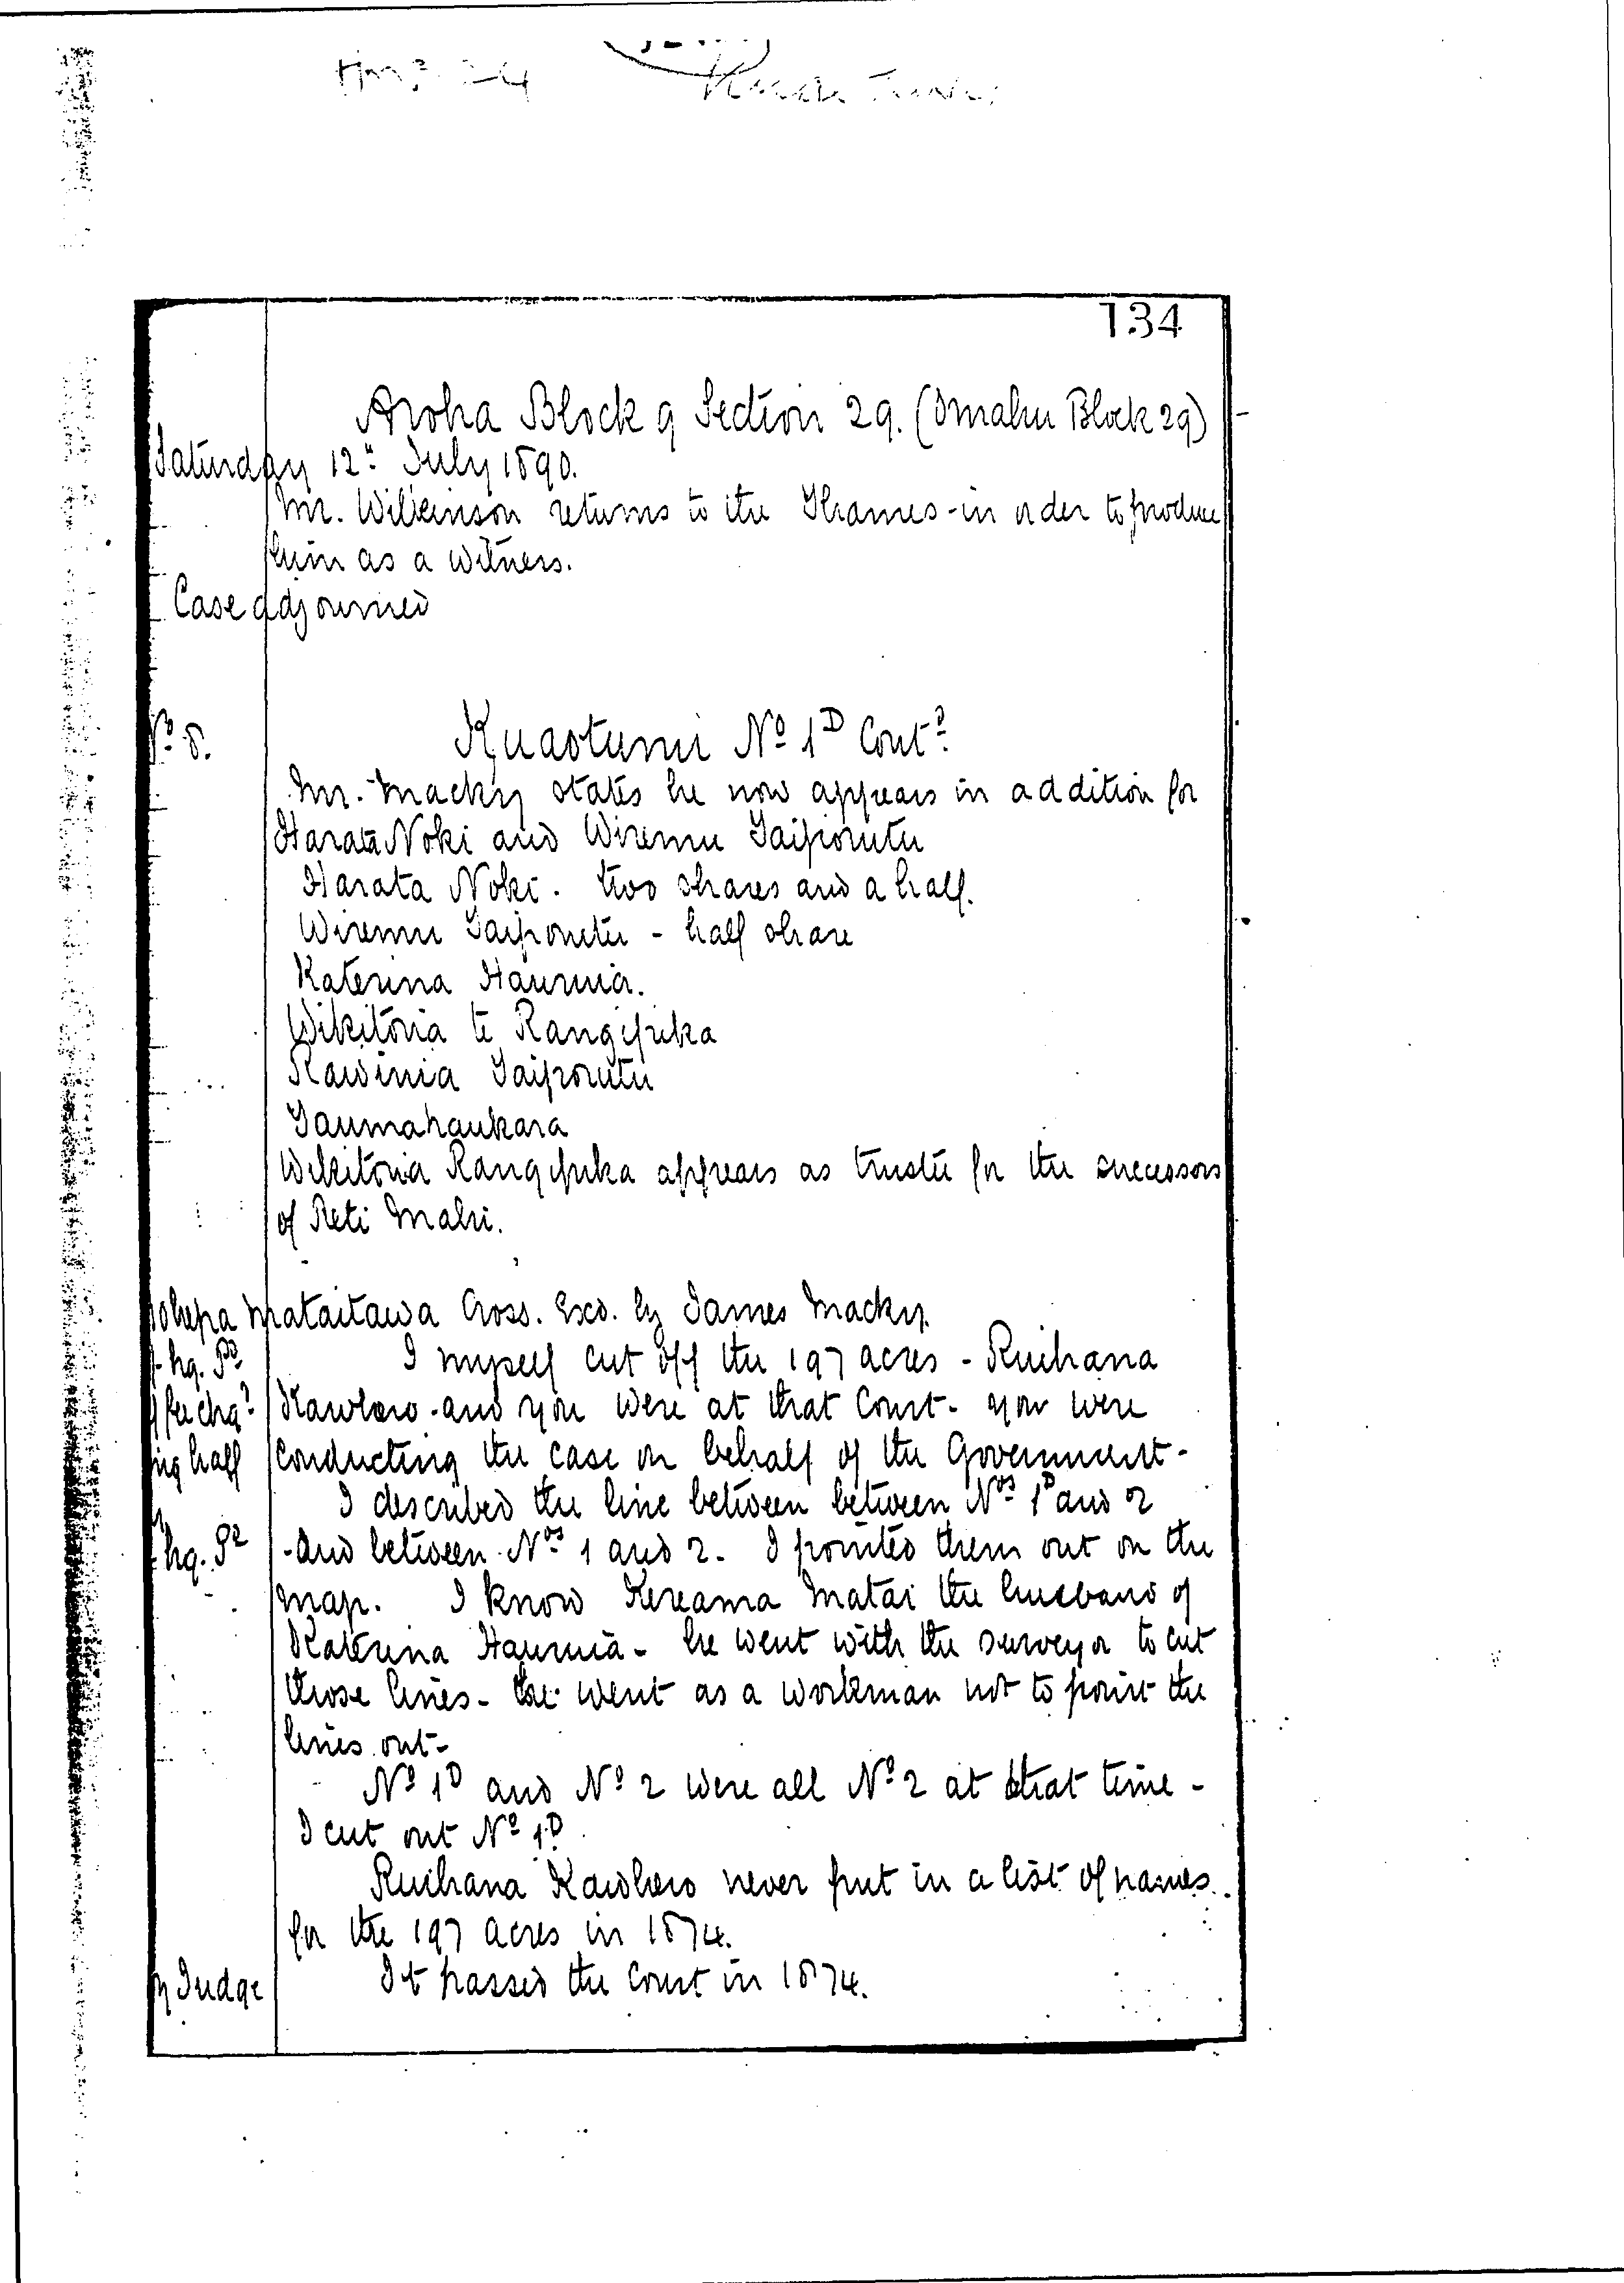 134
Aroha Block 9 Section 29. (Omahu Block 29)
Saturday 12th July 1890.
Mr. Wilkinson returns to the Thames - in order to produce
him as a witness.
Case adjourned
No. 8.
Kuaotunu No 1D Contd
Mr. Macky states he now appears in addition for
Harata Noki and Wiremu Taiporutu
Harata Noki. two shares and a half.
Wiremu Taiporutu - half share
Katerina Hauruia.
Wikitoria te Rangipika
Rawinia Taiporutu
Taumahaukara
Wikitoria Rangipika appears as trustee for the successors
of Reti Mahi.
Mataitawa Cross. Exd. by James Macky.
I myself cut off the 197 acres - Ruihana
Kawhero - and you were at that Court - you were
half conducting the case on behalf of the Government -
I described the line between between Nos 1D and 2
- And between Nos 1 and 2. I pointed them out on the
map. I know Kereama Matai the husband of
Katerina Hauruia - he went with the surveyor to cut
those lines - he went as a workman not to point the
lines out -
No 1D and No 2 were all No 2 at that time -
I cut out No 1D
Ruihana Kawhero never put in a list of names
for the 197 acres in 1874.
Judge It passed the Court in 1874.